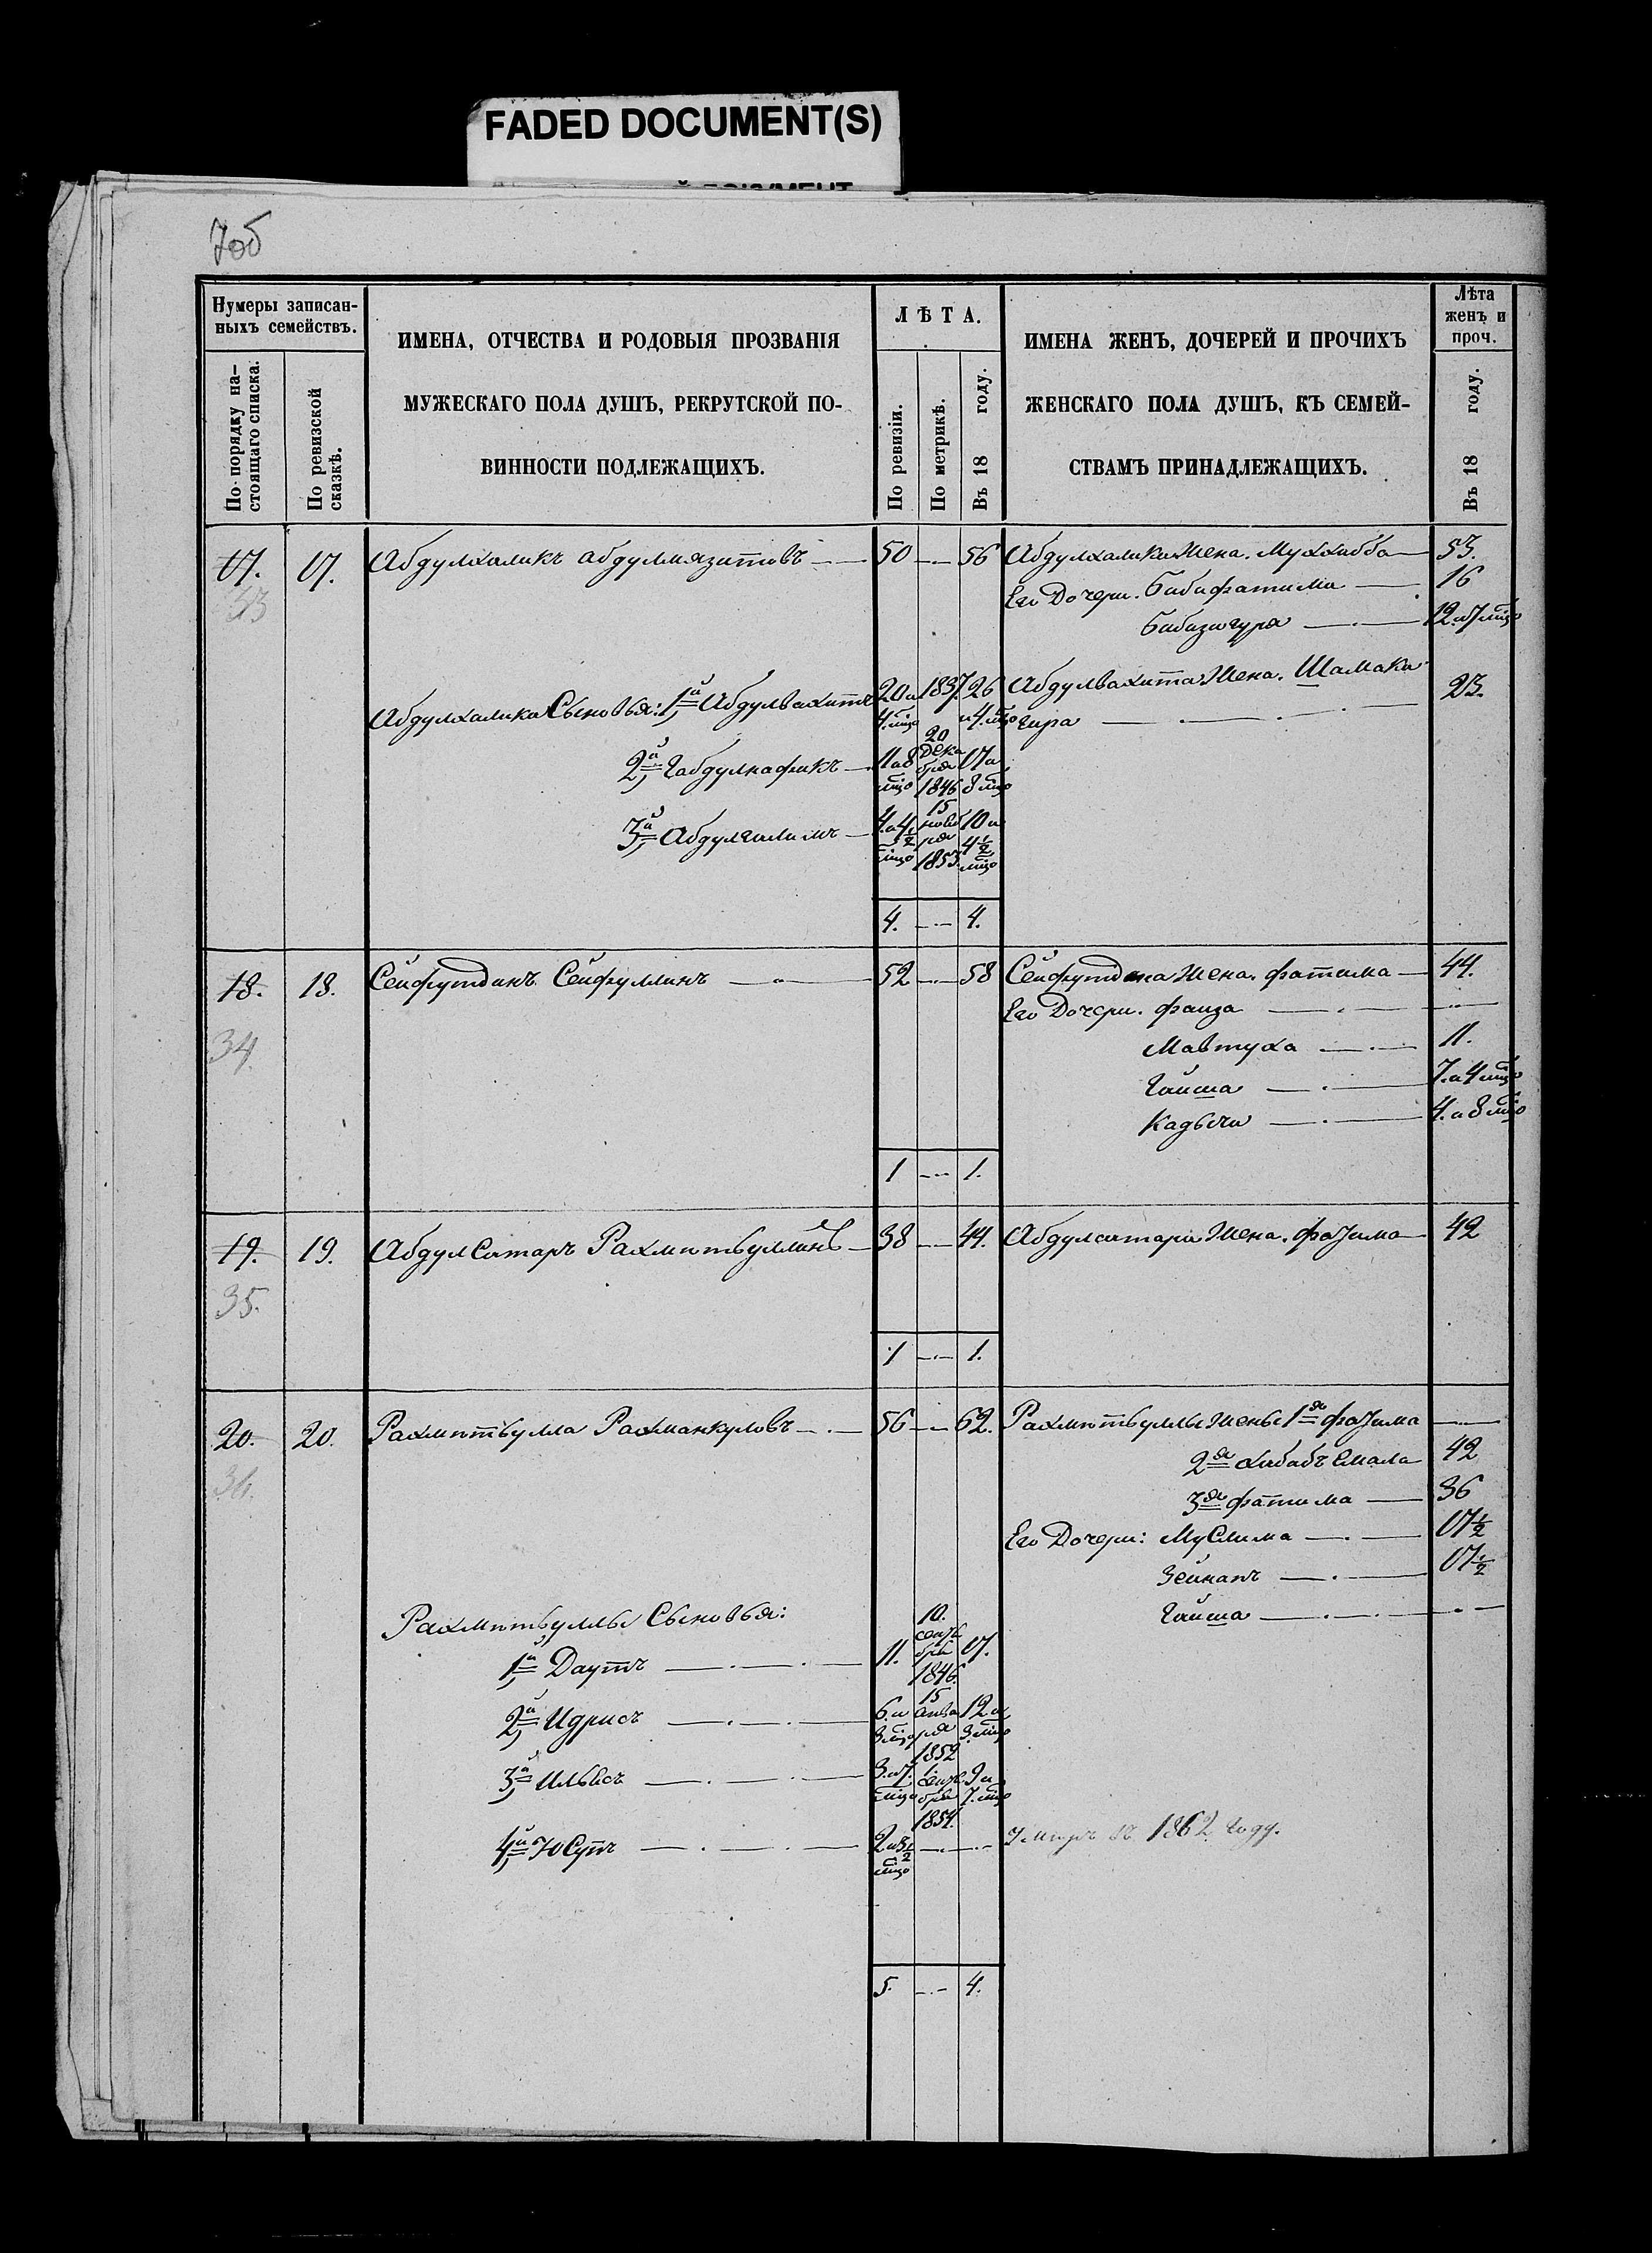 FADED DOCUMENT(S)
7об
Нумеры записан-
ныхъ семействъ.
По порядку на-
стоящаго списка.
По ревизской
сказкѣ.
ИМЕНА, ОТЧЕСТВА И РОДОВЫЯ ПРОЗВАНІЯ
МУЖЕСКАГО ПОЛА ДУШЪ, РЕКРУТСКОЙ ПО-
ВИННОСТИ ПОДЛЕЖАЩИХЪ.
ЛѢТА.
По ревизіи.
По метрикѣ.
Въ 18 году.
ИМЕНА ЖЕНЪ, ДОЧЕРЕЙ И ПРОЧИХЪ
ЖЕНСКАГО ПОЛА ДУШЪ, КЪ СЕМЕЙ-
СТВАМЪ ПРИНАДЛЕЖАЩИХЪ.
Лѣта
женъ и
проч.
Въ 18 году.
17. 17. Абдулхаликъ абдулмязитовъ 50 56 Абдулхалика Жена. Мухибба 53.
33 Его Дочери. Бибифатима 16
Бибизюгура 12. и 7 мцо
Абдулхалика Сыновья: 1й Абдулвахитъ 20 и 4. мцо 1837. 26 и 4. мцо Абдулвахита Жена. Шамака 23.
гира
2й Габдулнафикъ 11 и 8 мцо 20 дека бря 1846 17 и 8 мцо
3й Абдулгалимъ 4. и 4 1/2 мцо 15 нояб ря 1853. 10 и 4 1/2 мцо
4. 4.
18. 18. Сейфутдинъ Сейфуллинъ 52 58 Сейфутдина Жена. фатима 44.
Его Дочери. фаиза
34. Мавтуха 11.
Гайша 7. и 4 мцо
Кадычи 4. и 8 мцо
1 1.
19. 19. АбдулСатаръ Рахмитьуллинъ 38 44. Абдулсатара Жена. фатима 42
35.
1 1.
20. 20. Рахмитьулла Рахманкуловъ 56 62. Рахмитьуллы Жены 1я фатима
2я хибабъ Емала 42
36. 3я фатима 36
Его Дочери: МуСлима 17 1/2
Зейнапъ 17 1/2
Рахмитьуллы Сыновья: Гайша
1й Даутъ 11. 10. сентя бря 1846. 17.
2й Идрисъ 6. и 3 мцо 15 Янва ря 1852 12 и 3. мцо
3й Ильясъ 3. и 7. мцо 1. сентя бря 1854. 9 и 7. мцо
4й ЮСупъ 2 и 8 1/2 мцо Умиръ въ 1862. Году.
5. 4.